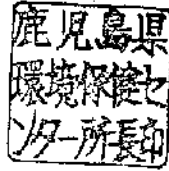 鹿児島県
環境保健セ
ンター所長印